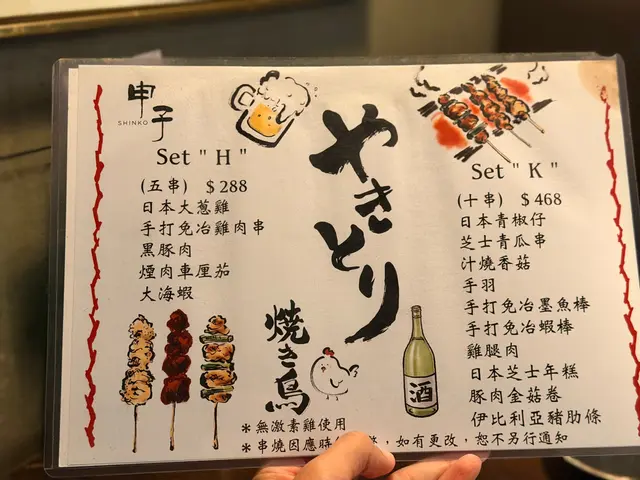 申子
SHINKO
Set " H "
(五串) $ 288
日本大葱雞
手打免冶雞肉串
黒豚肉
煙肉車厘茄
大海蝦
やきとり
焼き鳥
酒
Set " K "
(十串) $ 468
日本青椒仔
芝士青瓜串
汁燒香菇
手羽
手打免冶墨魚棒
手打免冶蝦棒
雞腿肉
日本芝士年糕
豚肉金菇卷
伊比利亞豬肋條
＊無激素雞使用
＊串燒因應時 ，如有更改，恕不另行通知